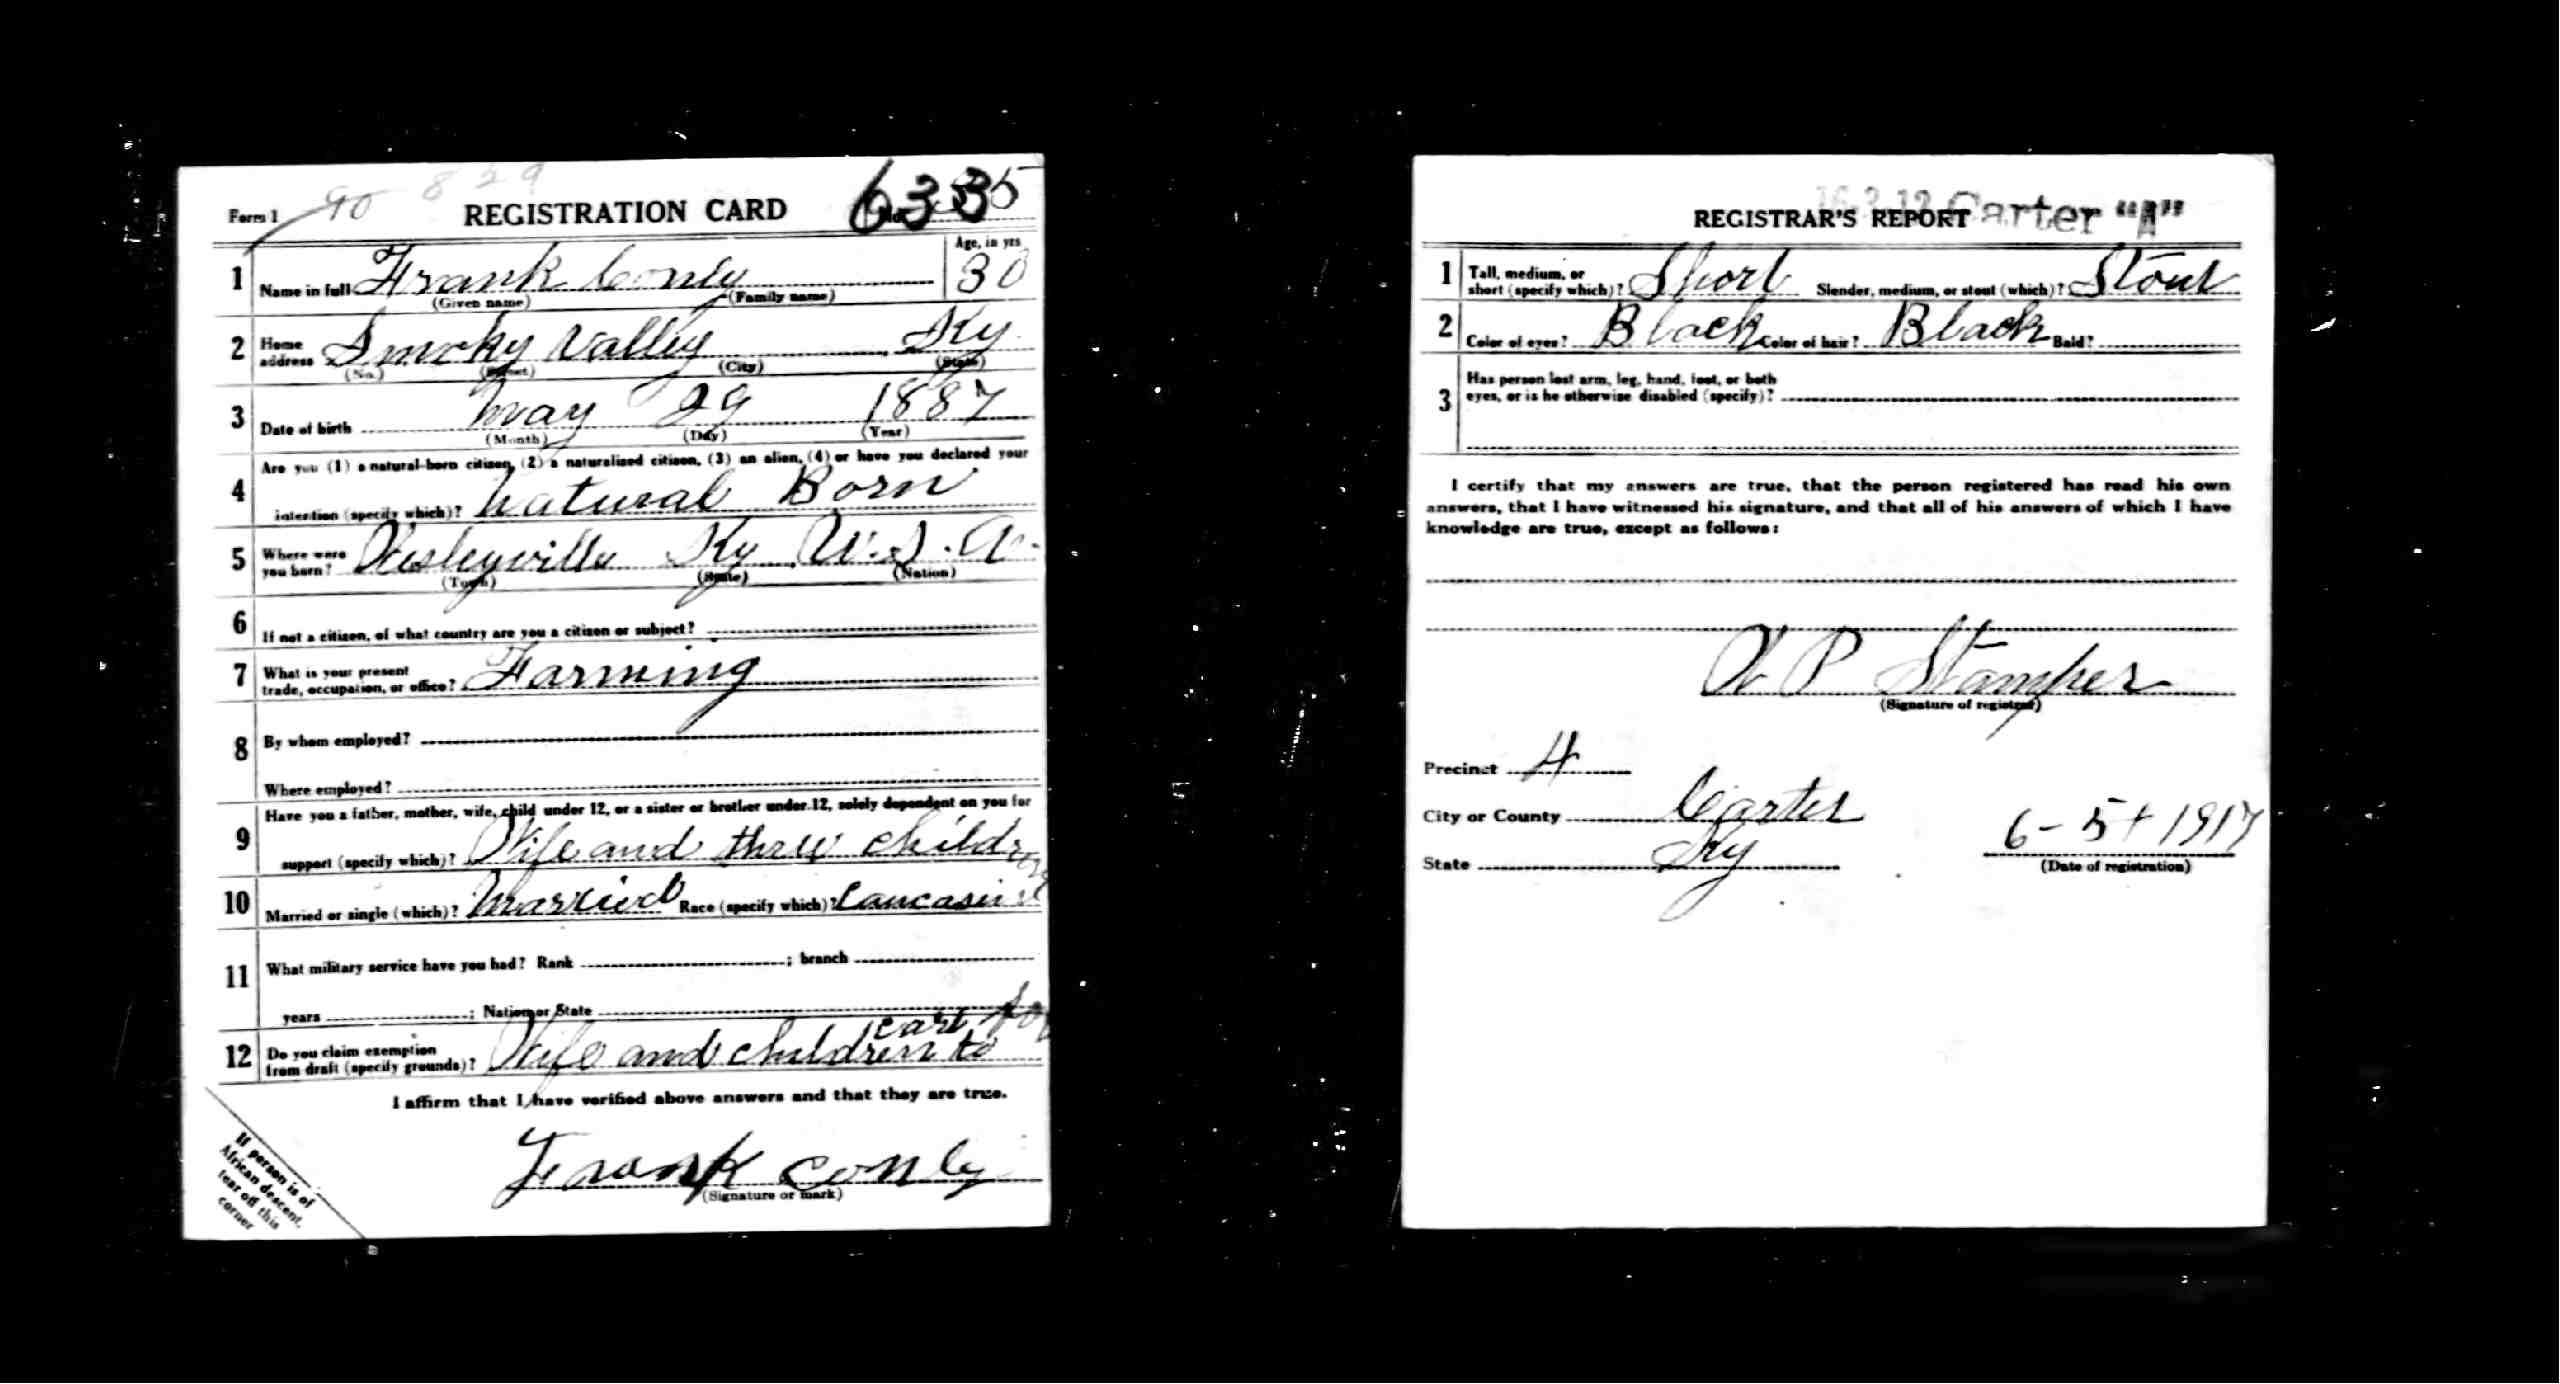 90 829
Form 1 REGISTRATION CARD No. 35
633
1 Name in full Frank Conly Age, in yrs 30
(Given name) (Family name)
2 Home address Smoky Valley Ky
(No.) (Street) (City) (State)
3 Date of birth May 29 1887
(Month) (Day) (Year)
4 Are you (1) a natural-born citizen, (2) a naturalized citizen, (3) an alien, (4) or have you declared your
intention (specify which)? Natural Born
5 Where were you born? Wesleyville Ky U.S.A.
(Town) (State) (Nation)
6 If not a citizen, of what country are you a citizen or subject?
7 What is your present
trade, occupation, or office? Farming
8 By whom employed?
Where employed?
9 Have you a father, mother, wife, child under 12, or a sister or brother under 12, solely dependent on you for
support (specify which)? Wife and three children
10 Married or single (which)? Married Race (specify which)? Caucasin
11 What military service have you had? Rank ; branch
years ; Nation or State
12 Do you claim exemption
from draft (specify grounds)? Wife and children to care for
I affirm that I have verified above answers and that they are true.
Frank Conly
(Signature or mark)
If person is of
African descent,
tear off this
corner
16-3-12 Carter "A"
REGISTRAR'S REPORT
1 Tall, medium, or
short (specify which)? Short Slender, medium, or stout (which)? Stout
2 Color of eyes? Black Color of hair? Black Bald?
3 Has person lost arm, leg, hand, foot, or both
eyes, or is he otherwise disabled (specify)?
I certify that my answers are true, that the person registered has read his own
answers, that I have witnessed his signature, and that all of his answers of which I have
knowledge are true, except as follows:
W P Stamper
(Signature of registrar)
Precinct 4
City or County Carter
State Ky
6-5+1917
(Date of registration)